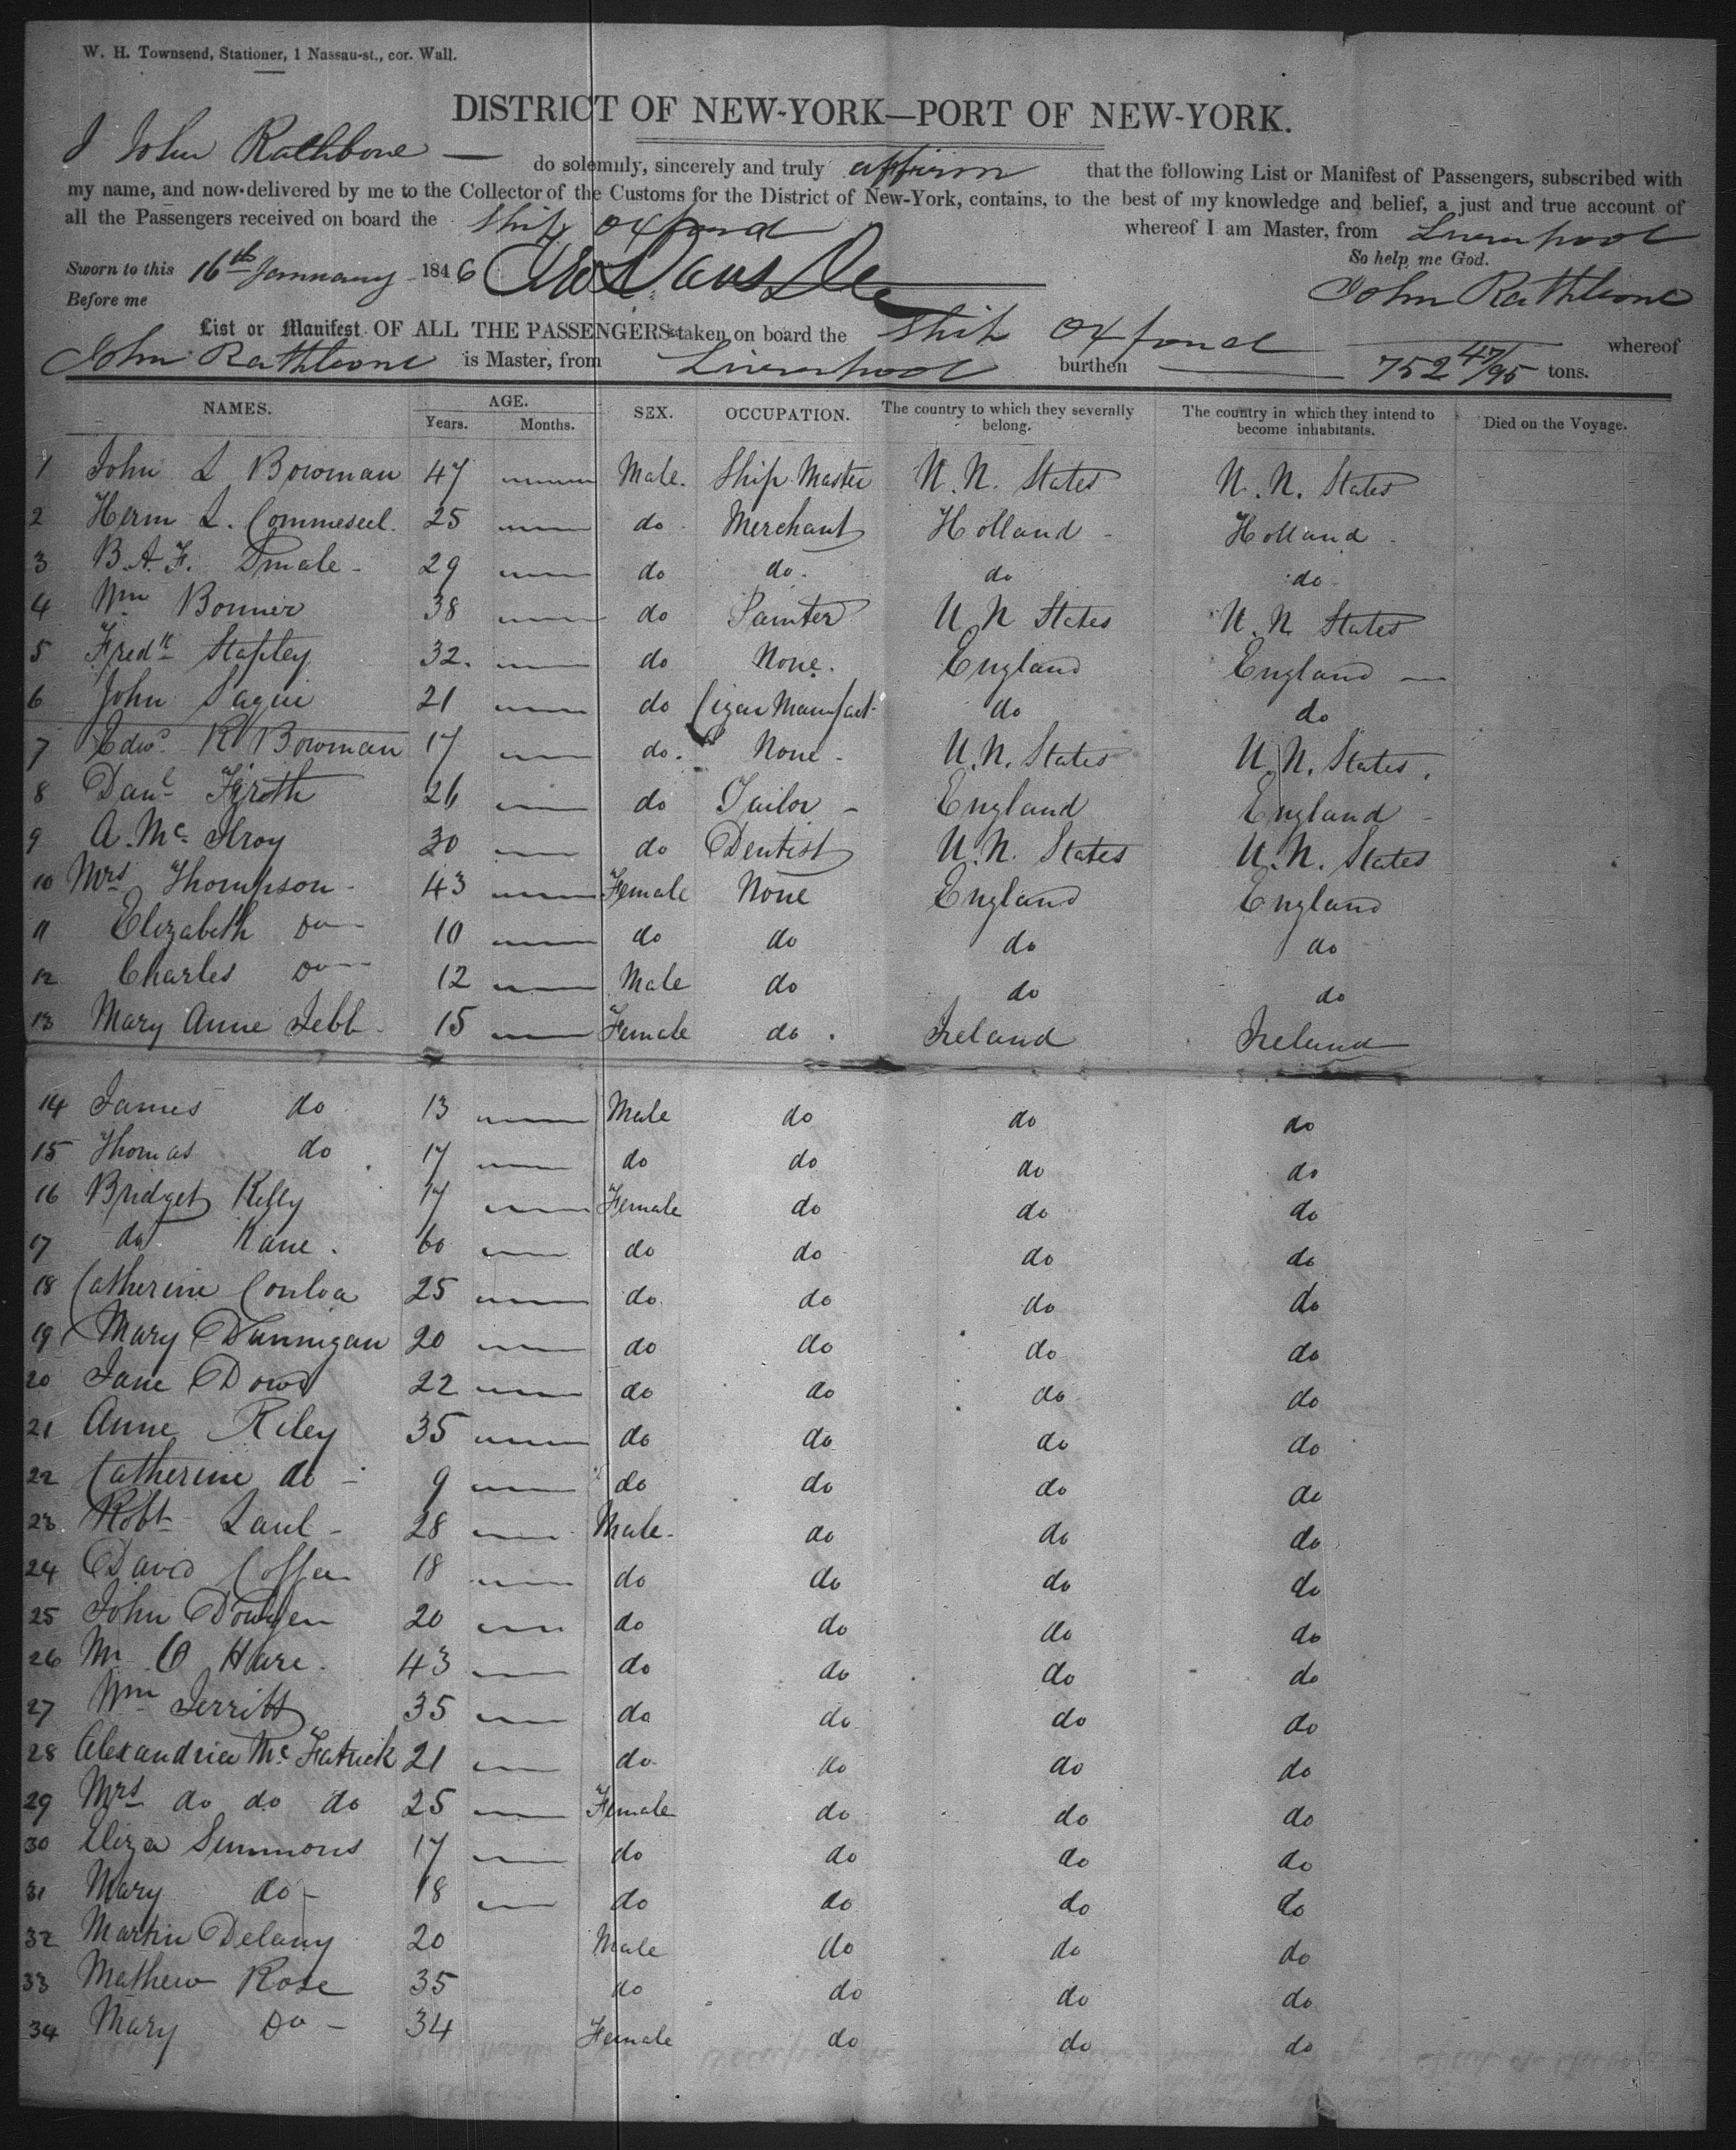 W. H. Townsend, Stationer, 1 Nassau-st., cor. Wall.
DISTRICT OF NEW-YORK—PORT OF NEW-YORK.
I John Rathbone — do solemnly, sincerely and truly affirm that the following List or Manifest of Passengers, subscribed with
my name, and now delivered by me to the Collector of the Customs for the District of New-York, contains, to the best of my knowledge and belief, a just and true account of
all the Passengers received on board the Ship Oxford whereof I am Master, from Liverpool
So help me God.
Sworn to this 16th January 1846
Before me
John Rathbone
List or Manifest OF ALL THE PASSENGERS taken on board the Ship Oxford whereof
John Rathbone is Master, from Liverpool burthen 752 47/95 tons.
NAMES. AGE. Years. Months. SEX. OCCUPATION. The country to which they severally belong. The country in which they intend to become inhabitants. Died on the Voyage.
1 John L Bowman 47 Male. Ship Master U.N. States U.N. States
2 Herm L. 25 do Merchant Holland Holland
3 B.A.F. Smale 29 do do. do do
4 Wm Bonner 38 do Painter U N States U.N States
5 Fredk Stapley 32. do None. England England
6 John 21 do Cigar Manufact do do
7 Edwd R Bowman 17 do. None U.N. States U.N. States.
8 Danl 26 do Tailor England England
9 A. Mc Ilroy 30 do Dentist U.N. States U.N. States
10 Mrs Thompson 43 Female None England England
11 Elizabeth Do 10 do do do do
12 Charles Do 12 Male do do do
13 Mary Anne Jebb 15 Female do Ireland Ireland
14 James do 13 Male do do do
15 Thomas do 17 do do do do
16 Bridget Kelly 17 Female do do do
17 do Kane. 60 do do do do
18 Catherine 25 do do do do
19 Mary Dunnigan 20 do do do do
20 Jane Dowd 22 do do do do
21 Anne Riley 35 do do do do
22 Catherine do 9 do do do do
23 Robt 28 Male do do do
24 David 18 do do do do
25 John 20 do do do do
26 O Hare. 43 do do do do
27 Wm Jerritt 35 do do do do
28 Alexandria Mc 21 do do do do
29 Mrs do do do 25 Female do do do
30 Eliza Simmons 17 do do do do
31 Mary do 18 do do do do
32 Martin Delany 20 Male do do do
33 Mathew Rose 35 do do do do
34 Mary Do 34 Female do do do